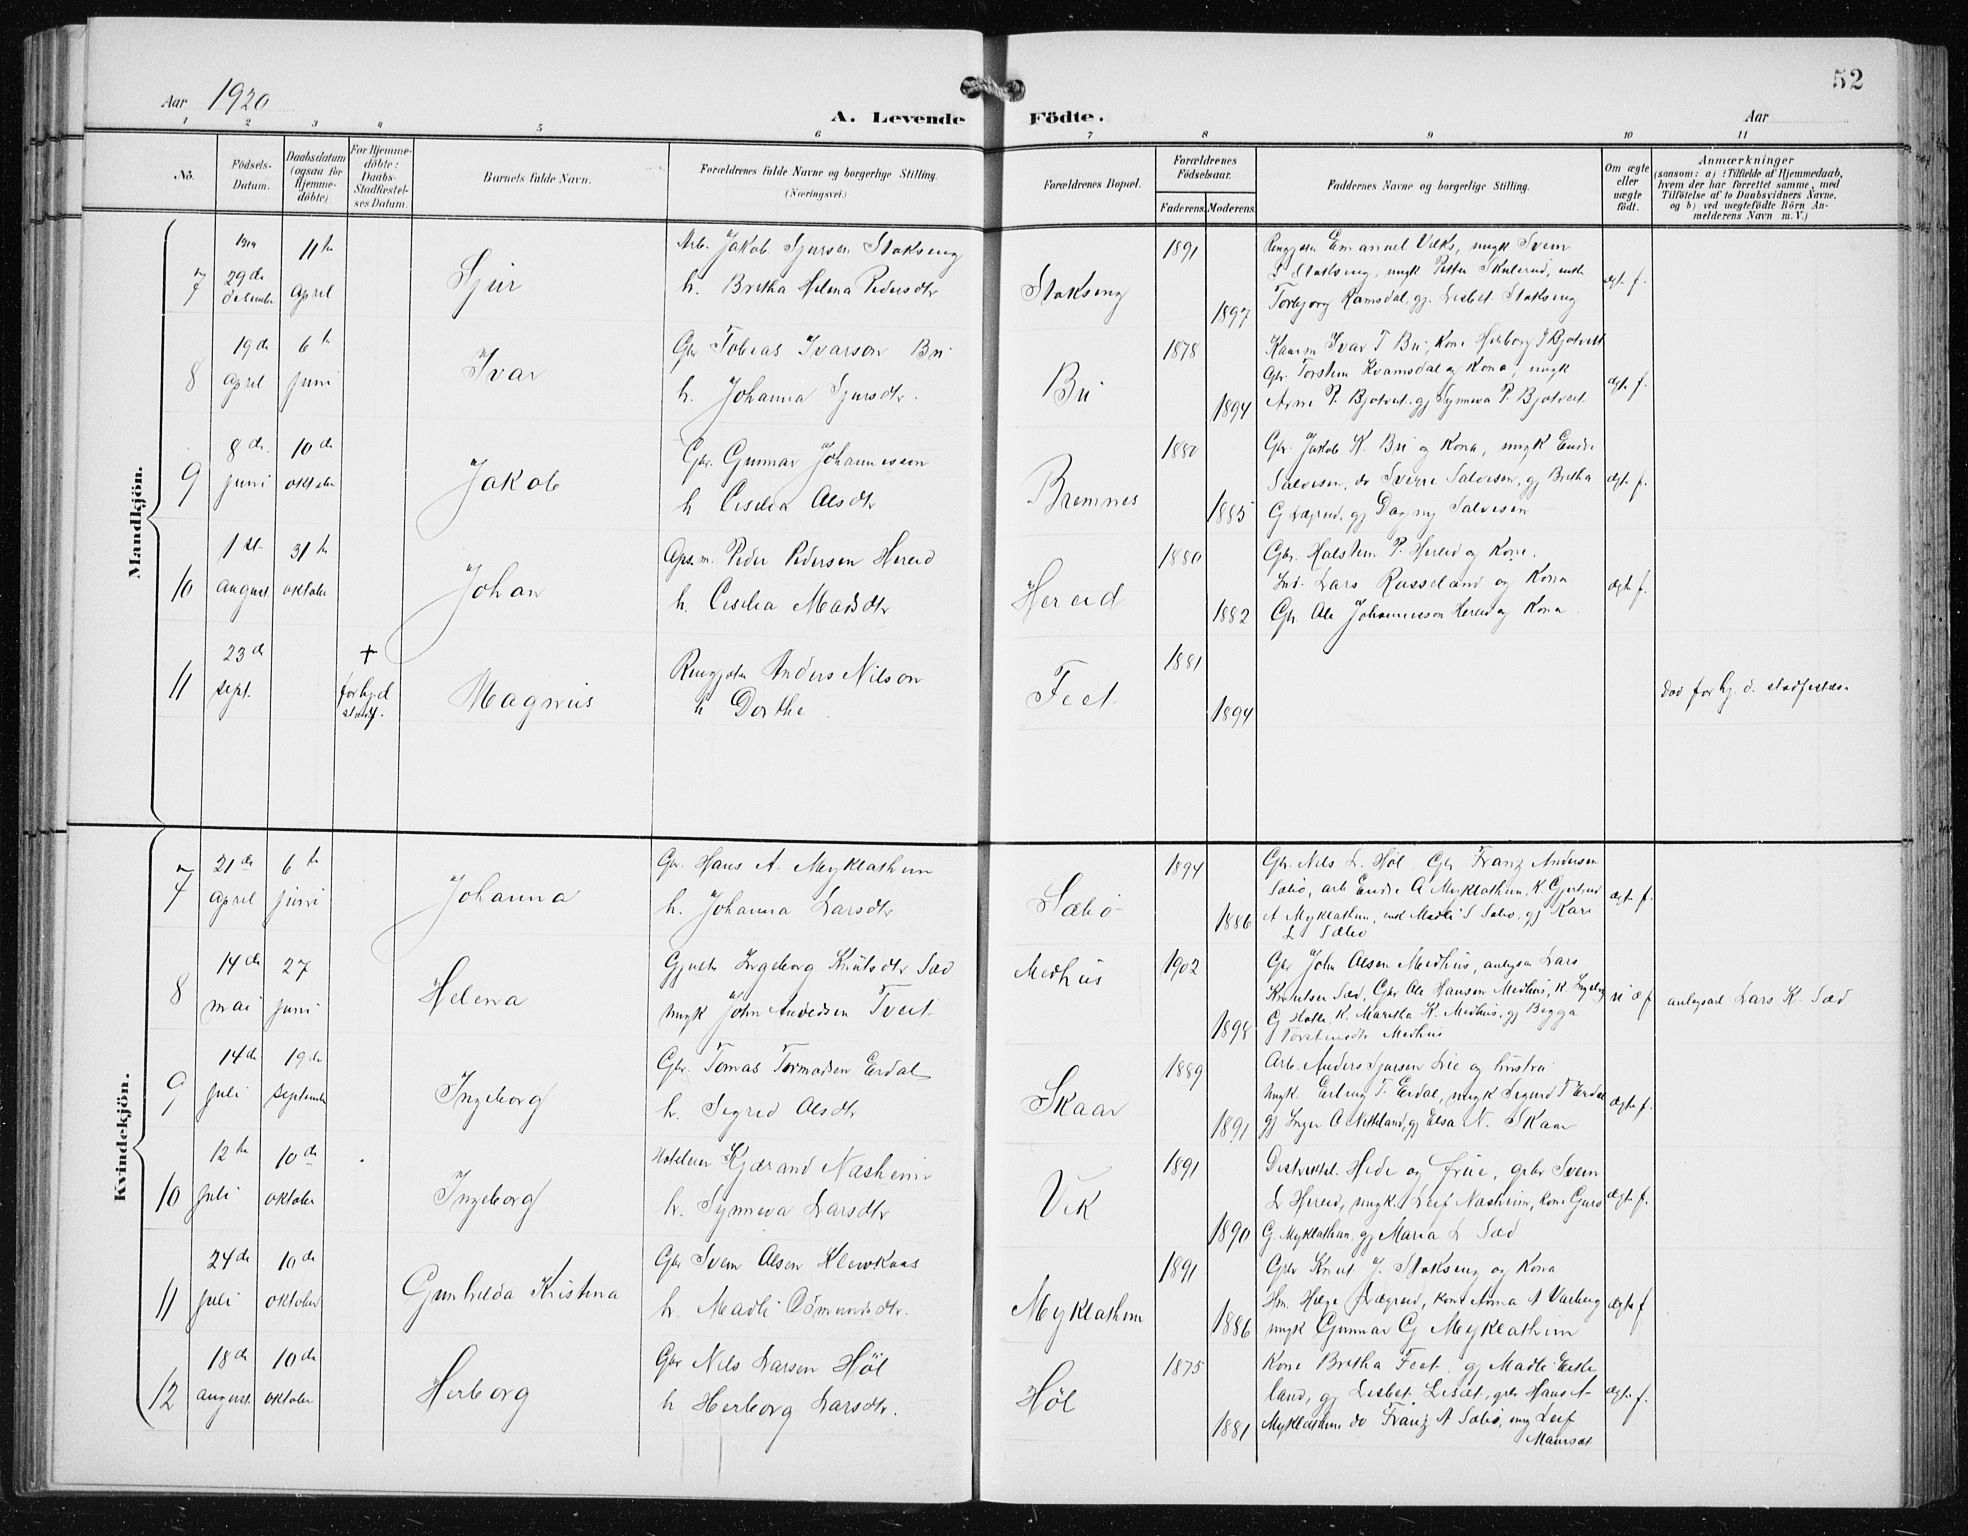 52
Aar 1920
A. Levende Födte.
Aar
1 2 3 4 5 6 7 8 9 10 11
No.
Födsels-Datum.
Daabsdatum (ogsaa för Hjemme-döbte)
For Hjemme-döbte: Daabs-Stadfæstel-ses Datum.
Barnets fulde Navn.
Forældrenes fulde Navne og borgerlige Stilling. (Næringsvei.)
Forældrenes Bopæl.
Forældrenes Födselsaar.
Faderens. Moderens.
Faddernes Navne og borgerlige Stilling.
Om ægte eller uægte födt.
Anmærkninger
(saasom: a) i Tilfælde af Hjemmedaab, hvem der har forrettet samme, med Tilföielse af to Daabsvidners Navne, og b) ved uægtefödte Börn An-melderens Navn m. V.)
Mandkjön.
7 1919 29de desember 11te april Sjur
Arb. Jakob Sjursen Stokseng
h. Bretha Helena Pedersdtr
Stokseng 1891 1897
Emanuel Viks, ungk Svein
S Stokseng, ungk Petter Skulerud, enke
Torbjørg Ramsdal, gj. Lisbet Stokseng
ægte f.
8 19de april 6te juni Ivar
Gbr Tobias Ivarson Bu
h. Johanna Sjursdtr.
Bu 1878 1894
Kaarm Ivar T Bu, Kone Herborg J Bjotveit
Gbr. Torstein Kvamsdal og Kona, ungk
Arne P. Bjotveit. gj Synneva P. Bjotveit
ægte f.
9 8de juni 10de oktober Jakob
Gbr. Gunnar Johannesson
h Cecilia Olsdtr
Bremnes 1880 1885
Gbr. Jakob K. Bu og Kona, ungk Endre
Salvesen, do Sverre Salvesen, gj Bretha
G Lægreid, gj Dagny Salvesen
ægte f.
10 1st august 31te oktober Johan
Opsm. Peder Pedersen Hereid
h. Cecilia Madsdtr
Hereid 1880 1882
Gbr. Halstein P. Hereid og Kone.
Ind. Lars Russeland og Kona
Gbr. Ole Johannesson Hereid og Kona
ægte f.
11 23de sept. + før hj.d stadf. Magnus
Anders Nilson
h Dorthe
Feet 1881 1894
Død før hj. d. stadfestelse
Kvindekjön.
7 21de april 6te juni Johanna
Gbr. Hans A. Myklathun
h. Johanna Larsdtr
Sæbø 1894 1886
Gbr. Nils L. Høl Gbr Franz Andersen
Sæbø, arb Endre A Myklathun, K. Gjertrud
A Myklathun, enk Madli S Sæbø, gj Kari
L Sæbø
ægte f.
8 14de mai 27 juni Helena
Ingeborg Knutsdtr Sæd
ungk John Andersen Tveit
Medhus 1902 1898
Gbr John Olsen Medhus, anleggsa Lars
Knutsen Sæd, Gbr Ole Hansen Medhus, K. Ingeborg
G Holte, K. Maritha K. Medhus, gj Begga
Torsteinsdtr Medhus
u æ f
anlegsarb Lars K. Sæd
9 14de juli 19de september Ingeborg
Gbr. Tomas Tormodsen Erdal
h. Sigrid Olsdtr
Skaar 1889 1891
Arb. Anders Sjursen Lie og hustru
ungk. Erling T. Erdal, ungk Sigurd T Erdal
gj Inger O Nesseland, gj Elsa N. Skaar
ægte f.
10 12te juli 10de oktober Ingeborg
Hoteleier Kjærand Næsheim
h. Synneva Larsdtr
Vik 1891 1890
Distriktsl. Hede og frue, gbr Svein
L Hereid, ungk. Leif Næsheim, Kone Gurid
G. Myklathun, gj Maria L Sæd
ægte f.
11 24de juli 10de oktober Gunhilda Kristina
Gbr Svein Olsen Kleivkaas
h. Madli Osmundsdtr.
Myklathun 1891 1886
Gbr Knut J. Stokseng og Kona
Hm. Helge Lægreid, Kone Anna A Varberg
ungk Gunnar G Myklathun
ægte f
12 18de august 10de oktober Herborg
Gbr Nils Larsen Høl
h Herborg Larsdtr.
Høl 1875 1881
Kone Bretha Feet, gj Madli
land, gj Lisbet Liset, gbr Hans A-
Myklathun do Franz A Sæbø, ung Leif
Maursæt
ægte f.